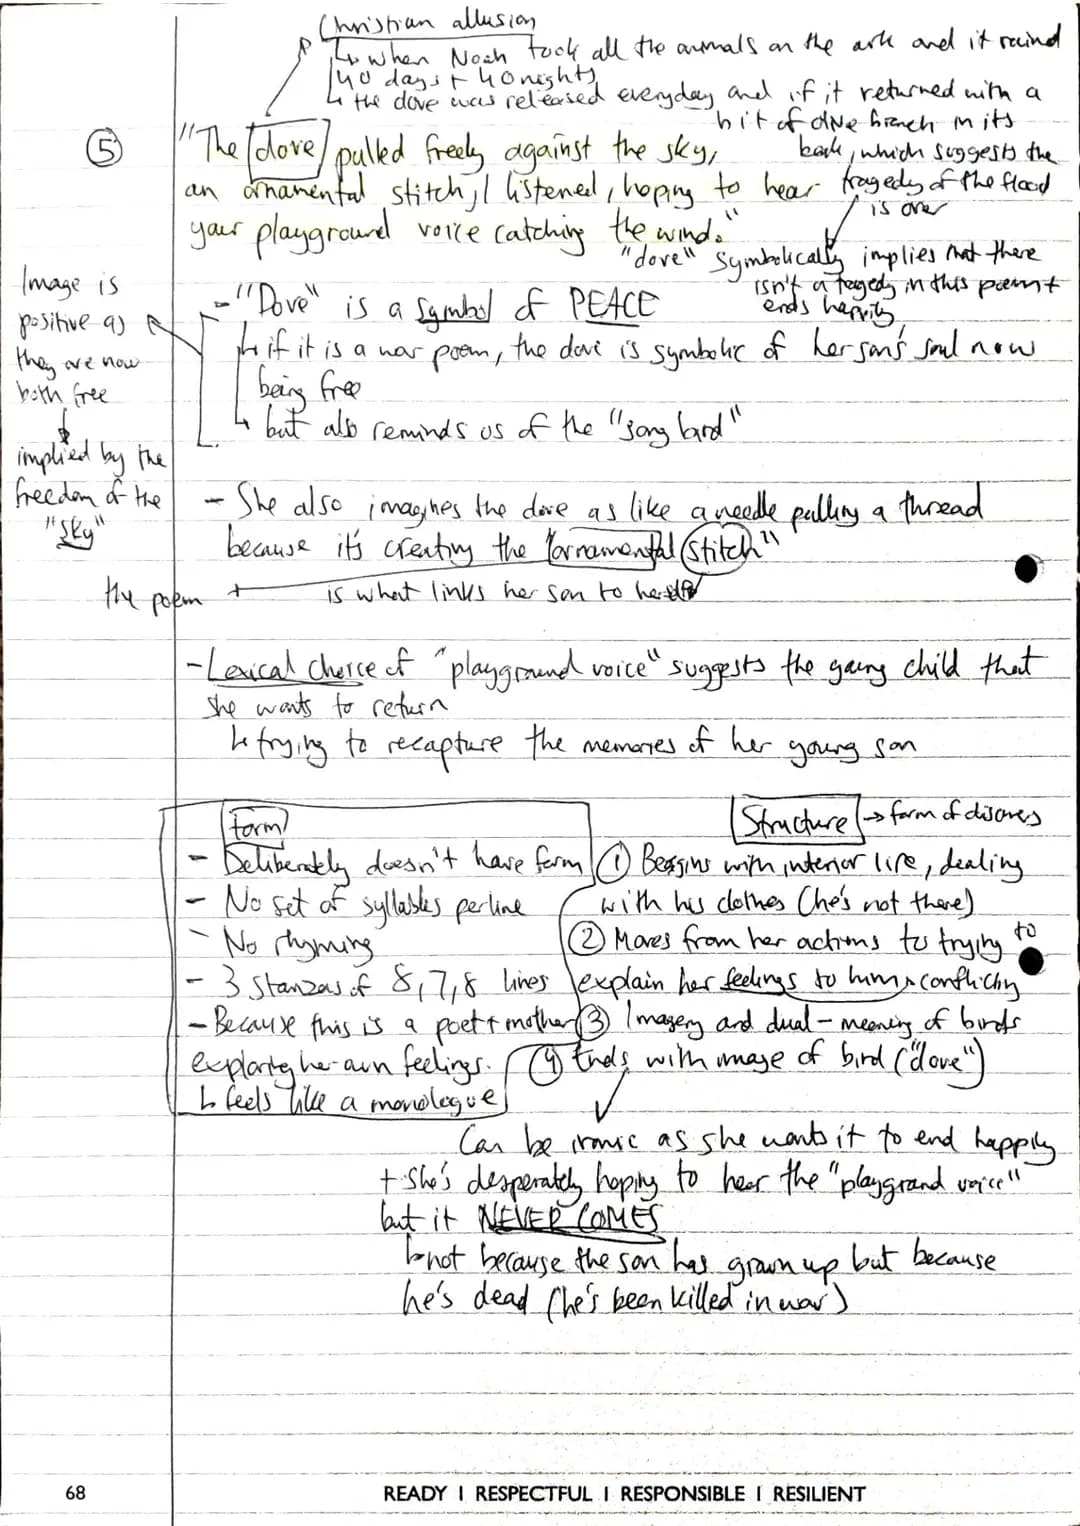 Christian allusion
↳ when Noah took all the animals on the ark and it raind
40 days + 40 nights
↳ the dove was released everyday and if it returned with a
bit of olive branch in its
beak, which suggests the
tragedy of the flood
is over
"dove" symbolically implies that there
isn't a tragedy in this poem +
ends happily
⑤
"The dove pulled freely against the sky,
an ornamental stitch, I listened, hoping to hear
your playground voice catching the wind."
Image is
positive as
they are now
both free
implied by the
freedom of the
"sky"
- "Dove" is a symbol of PEACE
↳ if it is a war poem, the dove is symbolic of her son's soul now
being free
↳ but also reminds us of the "song bird"
- She also imagines the dove as like a needle pulling a thread
because it's creating the "ornamental stitch"
the poem + is what links her son to herself
- Lexical choice of "playground voice" suggests the young child that
she wants to return
↳ trying to recapture the memories of her young son
Form
- Deliberately doesn't have form
- No set of syllables per line
- No rhyming
- 3 stanzas of 8,7,8 lines
- Because this is a poet + mother
exploring her own feelings.
↳ feels like a monologue
Structure → form of
① Begins with interior life, dealing
with his clothes (he's not there)
② Moves from her actions to trying to
explain her feelings to him,
③ Imagery and dual-meaning of birds
④ Ends with image of bird ("dove")
Can be ironic as she wants it to end happily
+ she's desperately hoping to hear the "playground voice"
but it NEVER COMES
↳ not because the son has grown up but because
he's dead (he's been killed in war)
68
READY | RESPECTFUL | RESPONSIBLE | RESILIENT